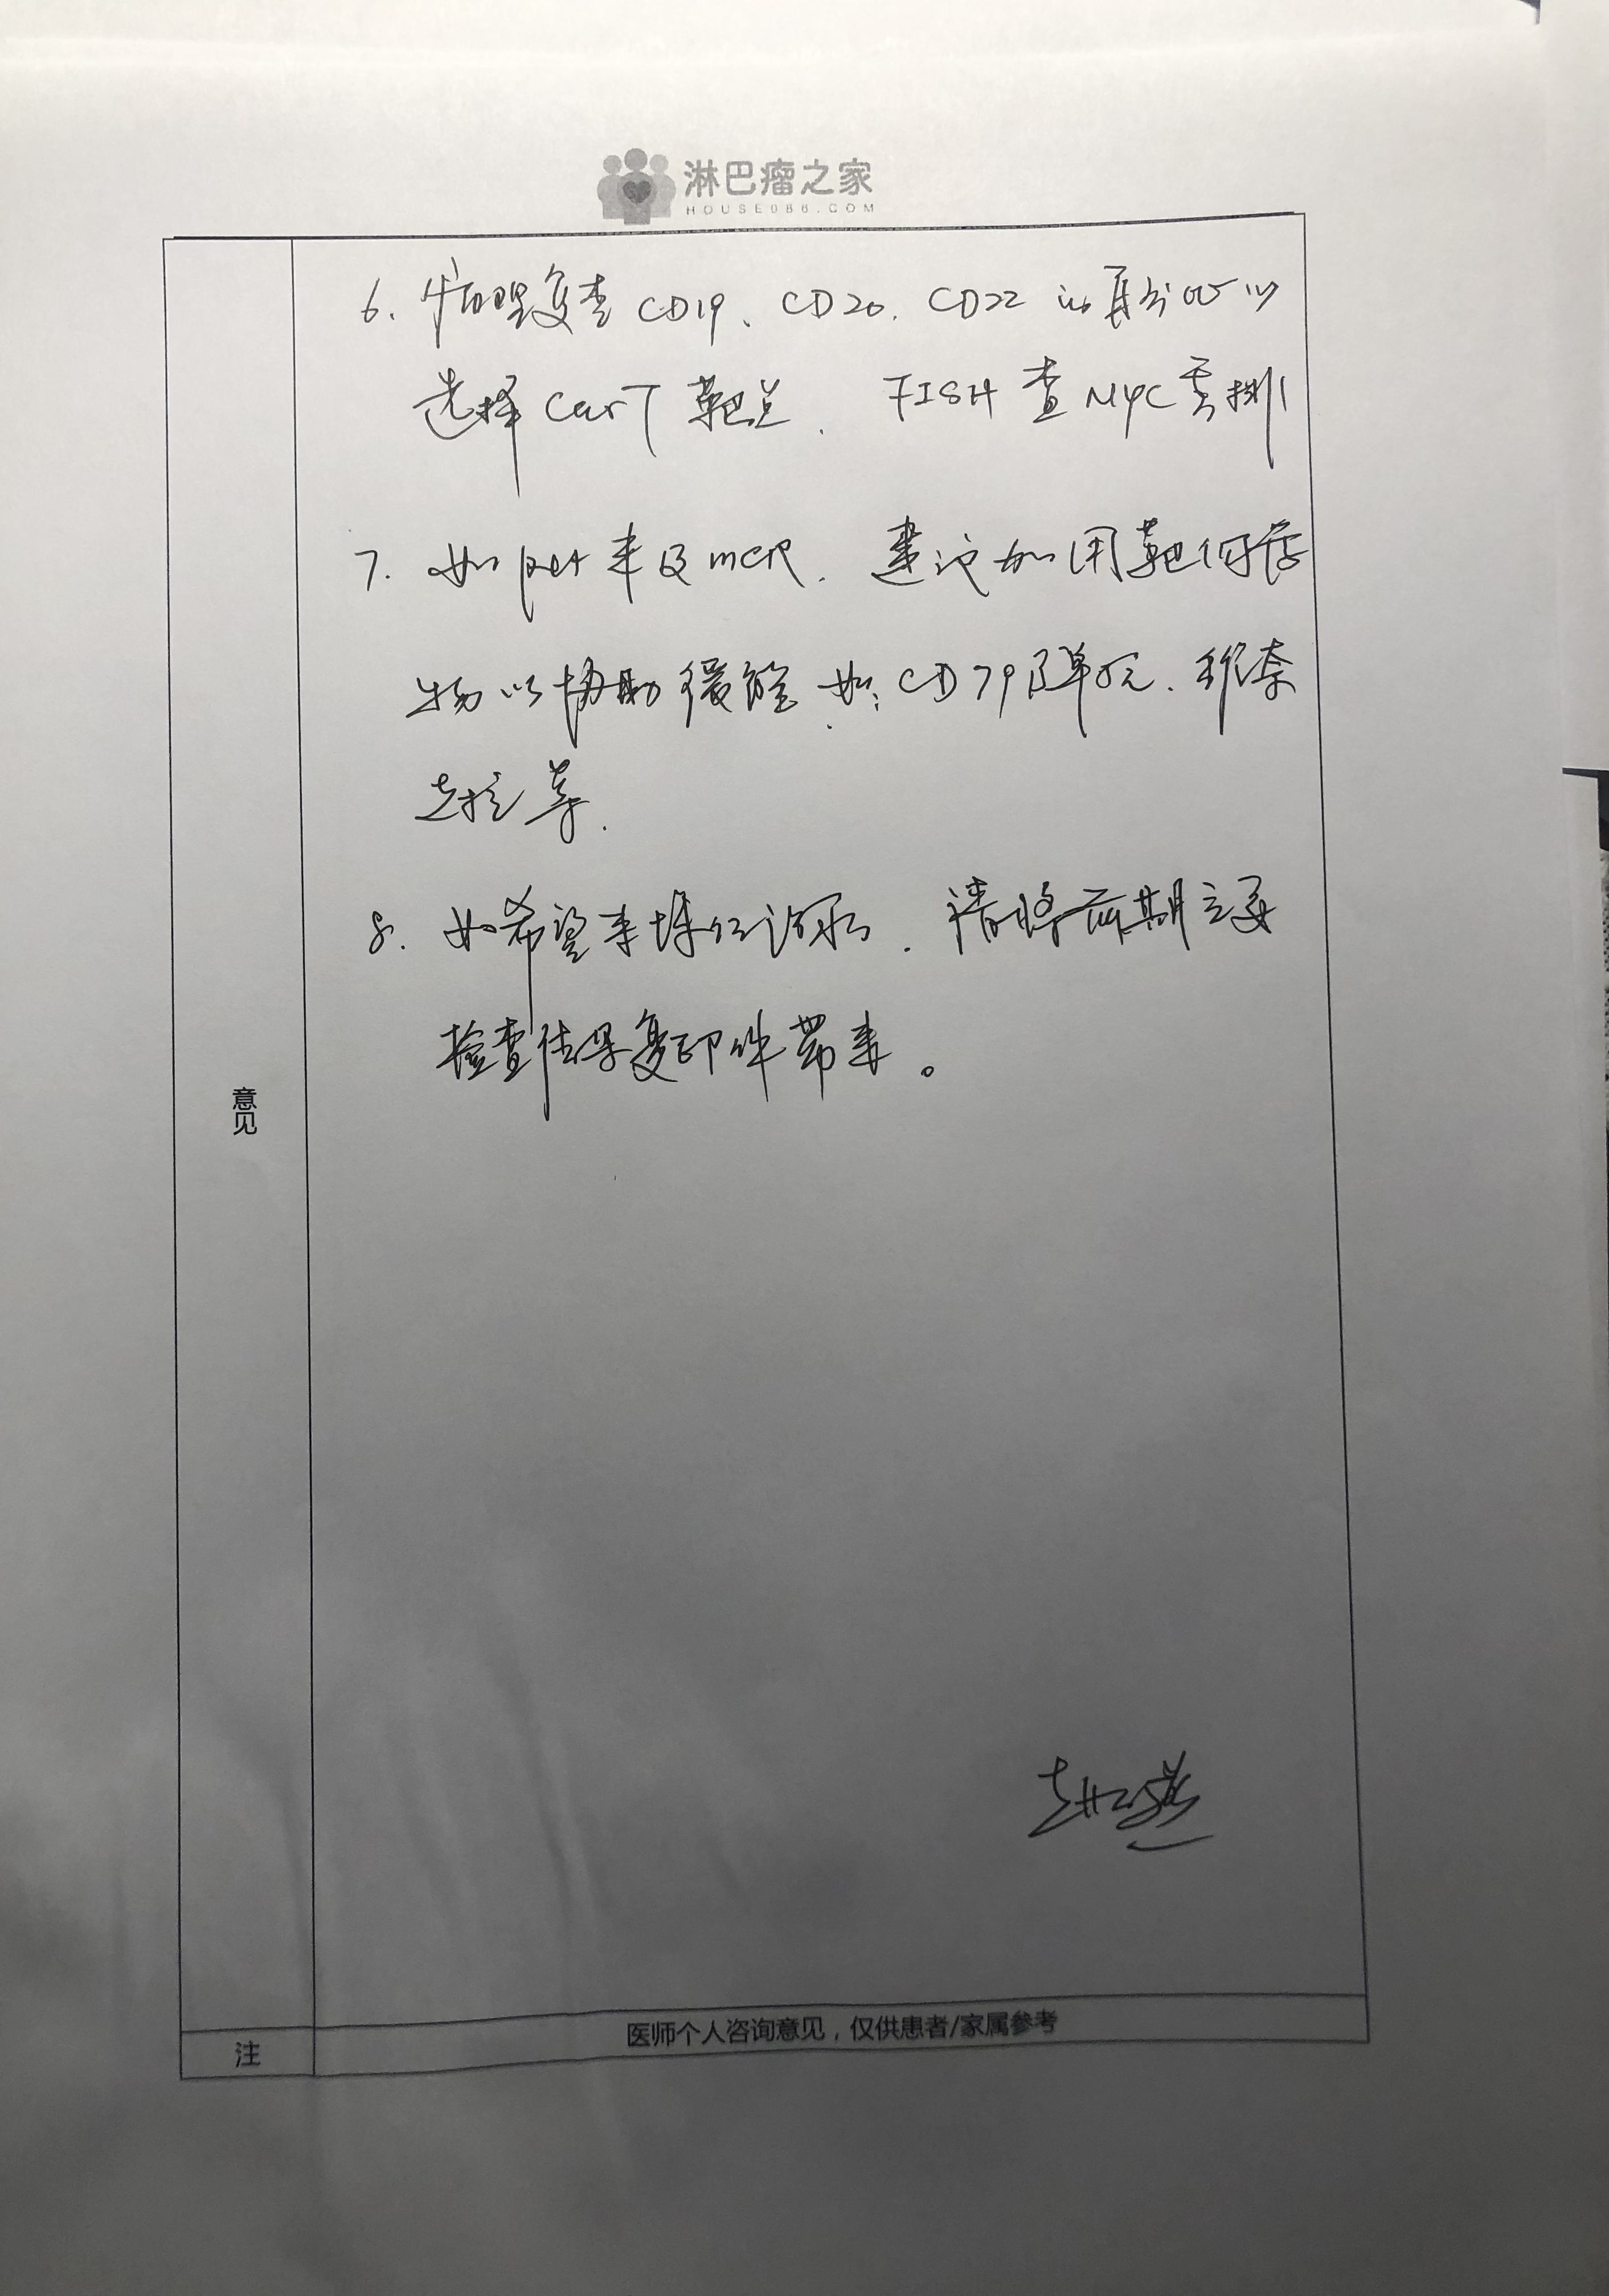 淋巴瘤之家
HOUSE086.COM
6. 病理复查 CD19、CD20、CD22 的百分比以
选择 CarT 靶点. FISH查MYC重排
7. 如pet未及mCR, 建议加用靶向药
物以协助缓解. 如: CD79β单抗、维奈
克拉等.
8. 如希望来我们诊疗, 请将前期主要
检查结果复印件带来。
意见
注
医师个人咨询意见，仅供患者/家属参考